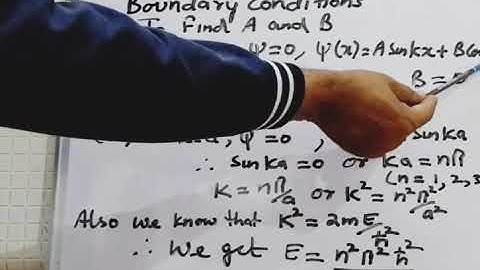 Boundary Conditions
To Find A and B
ψ=0, ψ(x)=A sinkx + B Co
B =
ψ=0, sinka
∴ sinka=0 or ka=nπ
(n=1, 2, 3
K = nπ/a or k² = n²π²/a²
Also we know that K² = 2mE/ħ²
∴ We get E = n²π²ħ²